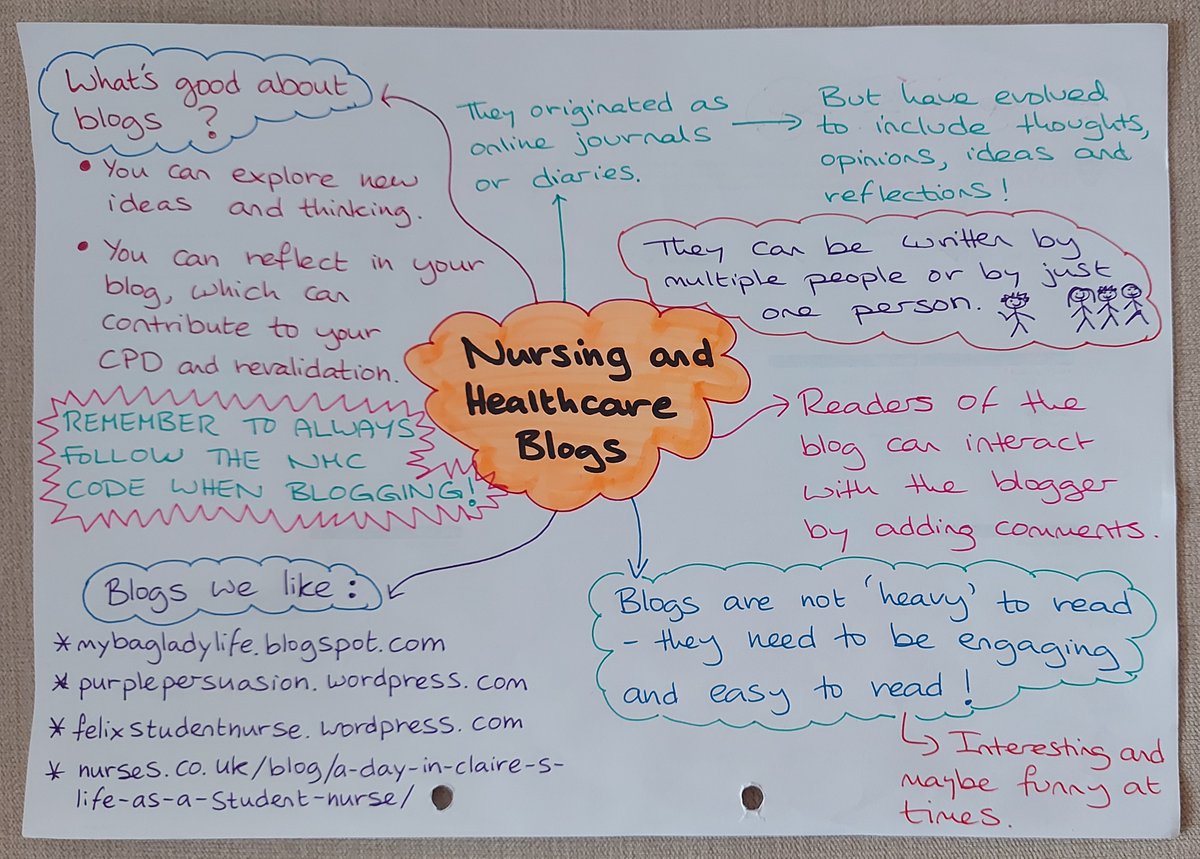 Nursing and
Healthcare
Blogs
What's good about
blogs ?
• You can explore new
ideas and thinking.
• You can reflect in your
blog, which can
contribute to your
CPD and revalidation.
REMEMBER TO ALWAYS
FOLLOW THE NMC
CODE WHEN BLOGGING!
They originated as
online journals
or diaries.
But have evolved
to include thoughts,
opinions, ideas and
reflections!
They can be written by
multiple people or by just
one person.
Readers of the
blog can interact
with the blogger
by adding comments.
Blogs are not 'heavy' to read
- they need to be engaging
and easy to read!
Interesting and
maybe funny at
times.
Blogs we like:
* mybagladylife.blogspot.com
* purplepersuasion.wordpress.com
* felixstudentnurse.wordpress.com
* nurses.co.uk/blog/a-day-in-claire-s-
life-as-a-student-nurse/